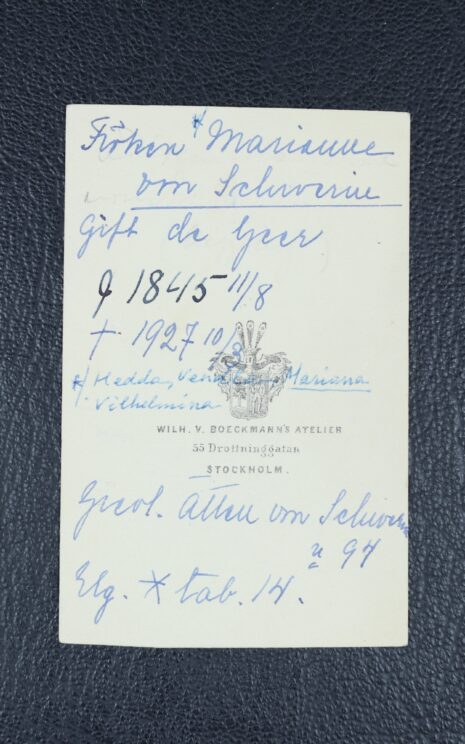 Fröken x/ Marianne
von Schwerin
Gift de Geer
1845 11/8
† 1927 10/
x/ Hedda, Mariana
Vilhelmina
WILH. V. BOECKMANN'S ATELIER
55 Drottninggatan
STOCKHOLM.
Grevl. Ätten von Schwerin
n 94
Elg. X tab. 14.